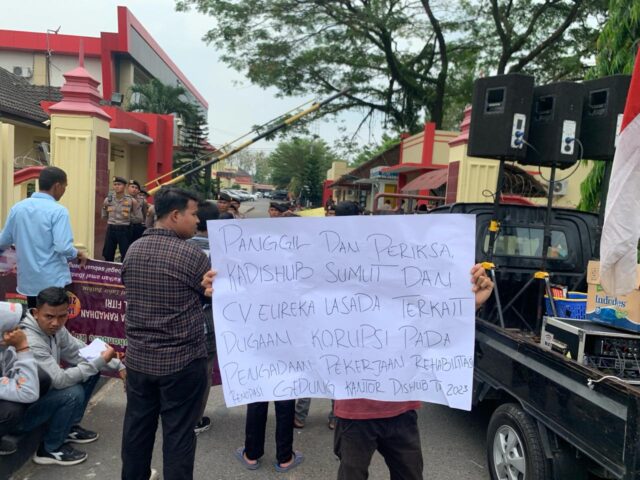 PANGGIL DAN PERIKSA.
KADISHUB SUMUT DAN
CV EUREKA LASADA TERKAIT
DUGAAN KORUPSI PADA
PENGADAAM PEKERJAAN REHABILITASI
RENOTASI GEDUNG KANTOR DISHUB TU 2023
RAMADHAN
FITRI